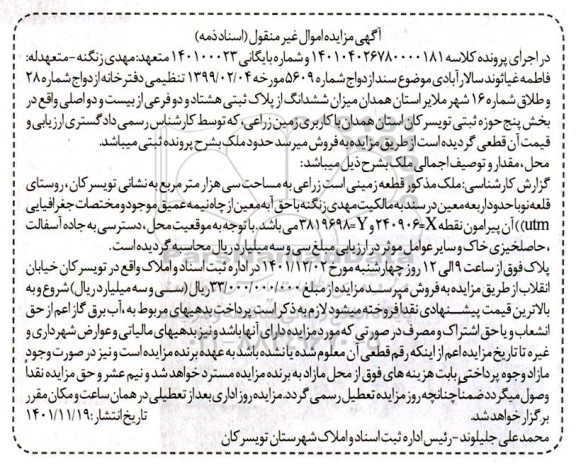 آگهی مزایده اموال غیر منقول (اسناد ذمه)
در اجرای پرونده کلاسه ۱۴۰۱۰۴۰۲۶۷۸۰۰۰۰۱۸۱ و شماره بایگانی ۱۴۰۱۰۰۰۲۳ متعهد: مهدی زنگنه - متعهدله:
فاطمه غیاثوند سالارآبادی موضوع سند ازدواج شماره ۵۶۰۹ مورخه ۱۳۹۹/۰۲/۰۴ تنظیمی دفترخانه ازدواج شماره ۲۸
و طلاق شماره ۱۶ شهر ملایر استان همدان میزان ششدانگ از پلاک ثبتی هشتاد و دو فرعی از بیست و دو اصلی واقع در
بخش پنج حوزه ثبتی تویسرکان استان همدان با کاربری زمین زراعی، که توسط کارشناس رسمی دادگستری ارزیابی و
قیمت آن قطعی گردیده است از طریق مزایده به فروش میرسد حدود ملک بشرح پرونده ثبتی میباشد.
محل، مقدار و توصیف اجمالی ملک بشرح ذیل میباشد:
گزارش کارشناسی: ملک مذکور قطعه زمینی است زراعی به مساحت سی هزار متر مربع به نشانی تویسرکان، روستای
قلعه نو با حدود اربعه معین در سند به مالکیت مهدی زنگنه با حق آبه معین از چاه نیمه عمیق موجود و مختصات جغرافیایی
utm)) آن پیرامون نقطه X=۲۴۰۹۰۶ و Y=۳۸۱۹۶۹۸ می باشد. با توجه به موقعیت محل، دسترسی به جاده آسفالت
، حاصلخیزی خاک و سایر عوامل موثر در ارزیابی مبلغ سی و سه میلیارد ریال محاسبه گردیده است.
پلاک فوق از ساعت ۹ الی ۱۲ روز چهارشنبه مورخ ۱۴۰۱/۱۲/۰۳ در اداره ثبت اسناد و املاک واقع در تویسرکان خیابان
انقلاب از طریق مزایده به فروش میرسد مزایده از مبلغ ۳۳/۰۰۰/۰۰۰/۰۰۰ ریال (سی و سه میلیارد ریال) شروع و به
بالاترین قیمت پیشنهادی نقدا فروخته میشود لازم به ذکر است پرداخت بدهیهای مربوط به، آب برق گاز اعم از حق
انشعاب و یا حق اشتراک و مصرف در صورتی که مورد مزایده دارای آنها باشد و نیز بدهیهای مالیاتی و عوارض شهرداری و
غیره تا تاریخ مزایده اعم از اینکه رقم قطعی آن معلوم شده یا نشده باشد به عهده برنده مزایده است و نیز در صورت وجود
مازاد وجوه پرداختی بابت هزینه های فوق از محل مازاد به برنده مزایده مسترد خواهد شد و نیم عشر و حق مزایده نقدا
وصول میگردد ضمنا چنانچه روز مزایده تعطیل رسمی گردد. مزایده روز اداری بعد از تعطیلی در همان ساعت و مکان مقرر
برگزار خواهد شد. تاریخ انتشار: ۱۴۰۱/۱۱/۱۹
محمدعلی جلیلوند - رئیس اداره ثبت اسناد و املاک شهرستان تویسرکان